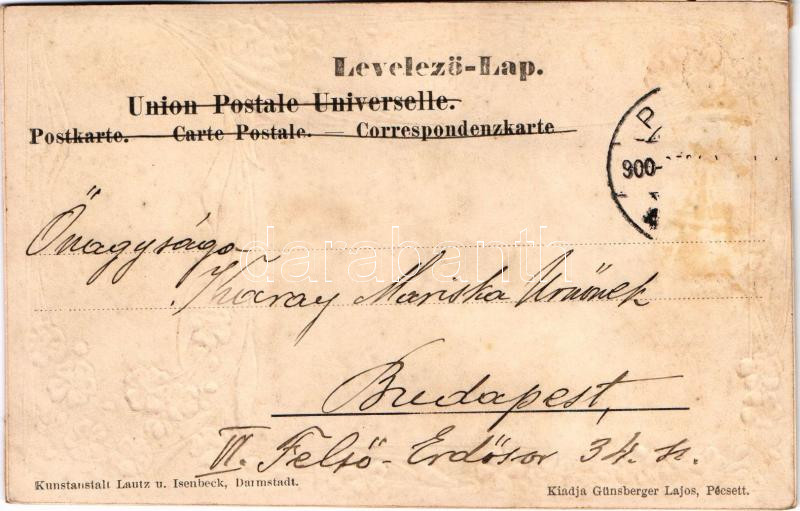 Levelező-Lap.
Union Postale Universelle.
Postkarte. — Carte Postale. — Correspondenzkarte
P
900-
Önagysága
Karay Mariska Úrnőnek
darabanth
Budapest,
VI. Felső-Erdősor 34. sz.
Kunstanstalt Lautz u. Isenbeck, Darmstadt.
Kiadja Günsberger Lajos, Pécsett.